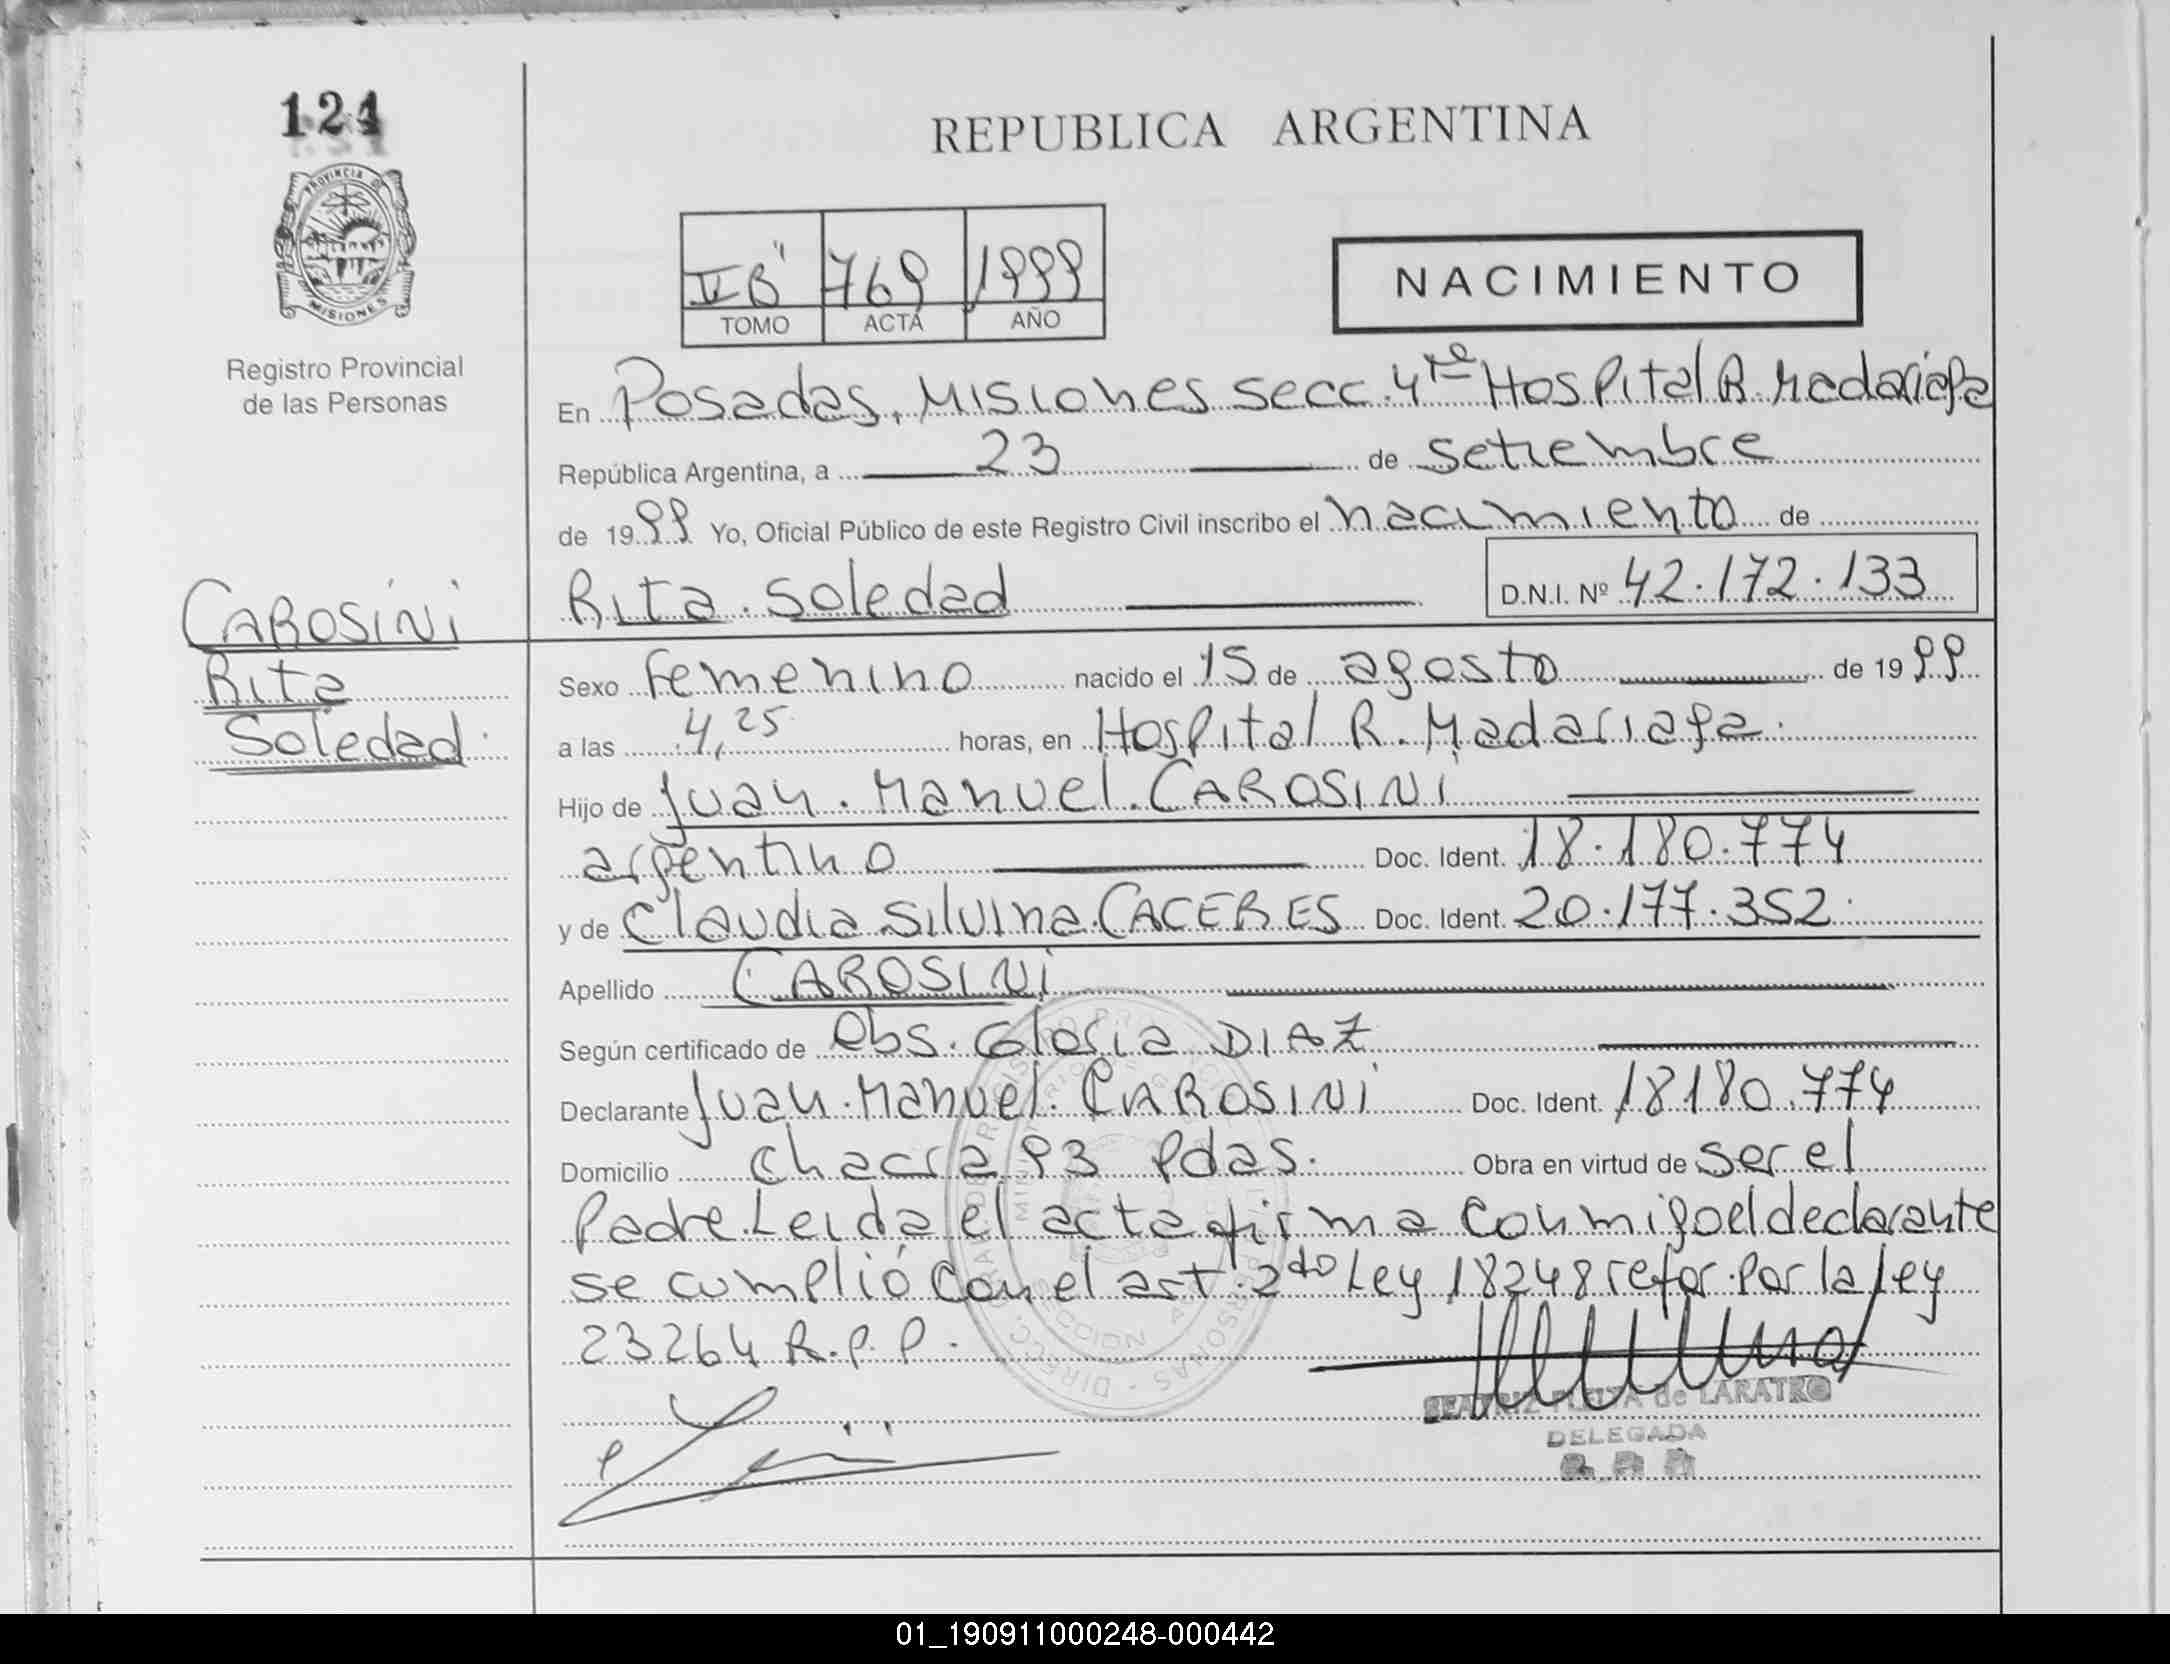 124
REPUBLICA ARGENTINA
PROVINCIA DE
MISIONES
Registro Provincial
de las Personas
769 1999
TOMO ACTA AÑO
NACIMIENTO
En Posadas, Misiones secc. 4ta Hospital R. Madariaga
República Argentina, a 23 de setiembre
de 1999 Yo, Oficial Público de este Registro Civil inscribo el nacimiento de
Rita Soledad D.N.I. Nº 42.172.133
CAROSINI
Rita
Soledad
Sexo femenino nacido el 15 de agosto de 1999
a las 4,25 horas, en Hospital R. Madariaga.
Hijo de Juan Manuel CAROSINI
argentino Doc. Ident. 18.180.774
y de Claudia Silvina CACERES Doc. Ident. 20.177.352
Apellido CAROSINI
Según certificado de Obs. Gloria DIAZ
Declarante Juan Manuel CAROSINI Doc. Ident. 18180.774
Domicilio chacra 93 Pdas. Obra en virtud de ser el
Padre. Leida el acta firma conmigo el declarante
se cumplió con el art. 2do Ley 18248 refor. por la ley
23264 R.P.P.
BEATRIZ de LARATRO
DELEGADA
01_190911000248-000442